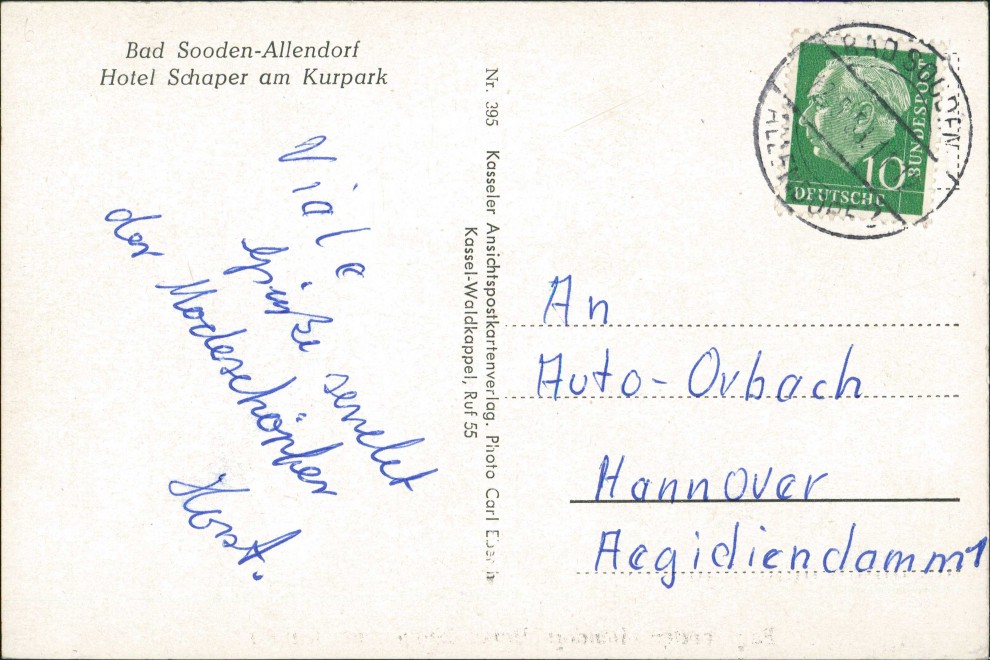 Bad Sooden-Allendorf
Hotel Schaper am Kurpark
Viele
Grüße sendet
der Modeschöpfer
Horst.
Nr. 395 Kasseler Ansichtspostkartenverlag. Photo Carl Eber
Kassel-Waldkappel, Ruf 55
BAD SOODEN
ALLENDORF
DEUTSCHE
BUNDESPOST
10
An
Auto-Orbach
Hannover
Aegidiendamm 1